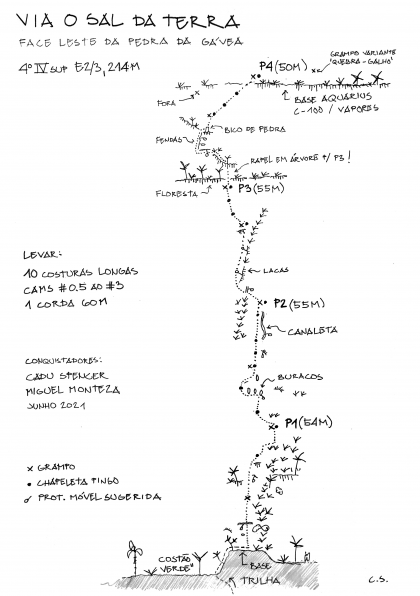 VIA O SAL DA TERRA
FACE LESTE DA PEDRA DA GÁVEA
4º IV SUP E2/3, 214M
P4 (50M)
GRAMPO VARIANTE
"QUEBRA-GALHO"
FORA
BASE AQUÁRIUS
C-100 / VAPORES
BICO DE PEDRA
FENDAS
RAPEL EM ÁRVORE P/ P3!
FLORESTA
P3 (55M)
LEVAR:
10 COSTURAS LONGAS
CAMS #0.5 AO #3
1 CORDA 60M
LACAS
P2 (55M)
CANALETA
CONQUISTADORES:
CADU SPENCER
MIGUEL MONTEZA
JUNHO 2021
BURACOS
P1 (54M)
x GRAMPO
• CHAPELETA PINGO
PROT. MÓVEL SUGERIDA
"COSTÃO
VERDE"
BASE
TRILHA
C.S.